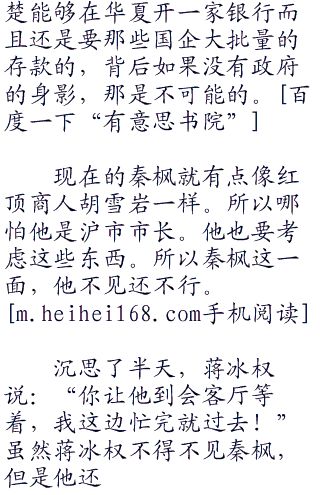 楚能够在华夏开一家银行而
且还是要那些国企大批量的
存款的，背后如果没有政府
的身影，那是不可能的。[百
度一下“有意思书院”]
现在的秦枫就有点像红
顶商人胡雪岩一样。所以哪
怕他是沪市市长。他也要考
虑这些东西。所以秦枫这一
面，他不见还不行。
[m.heihei168.com手机阅读]
沉思了半天，蒋冰权
说：“你让他到会客厅等
着，我这边忙完就过去！”
虽然蒋冰权不得不见秦枫，
但是他还